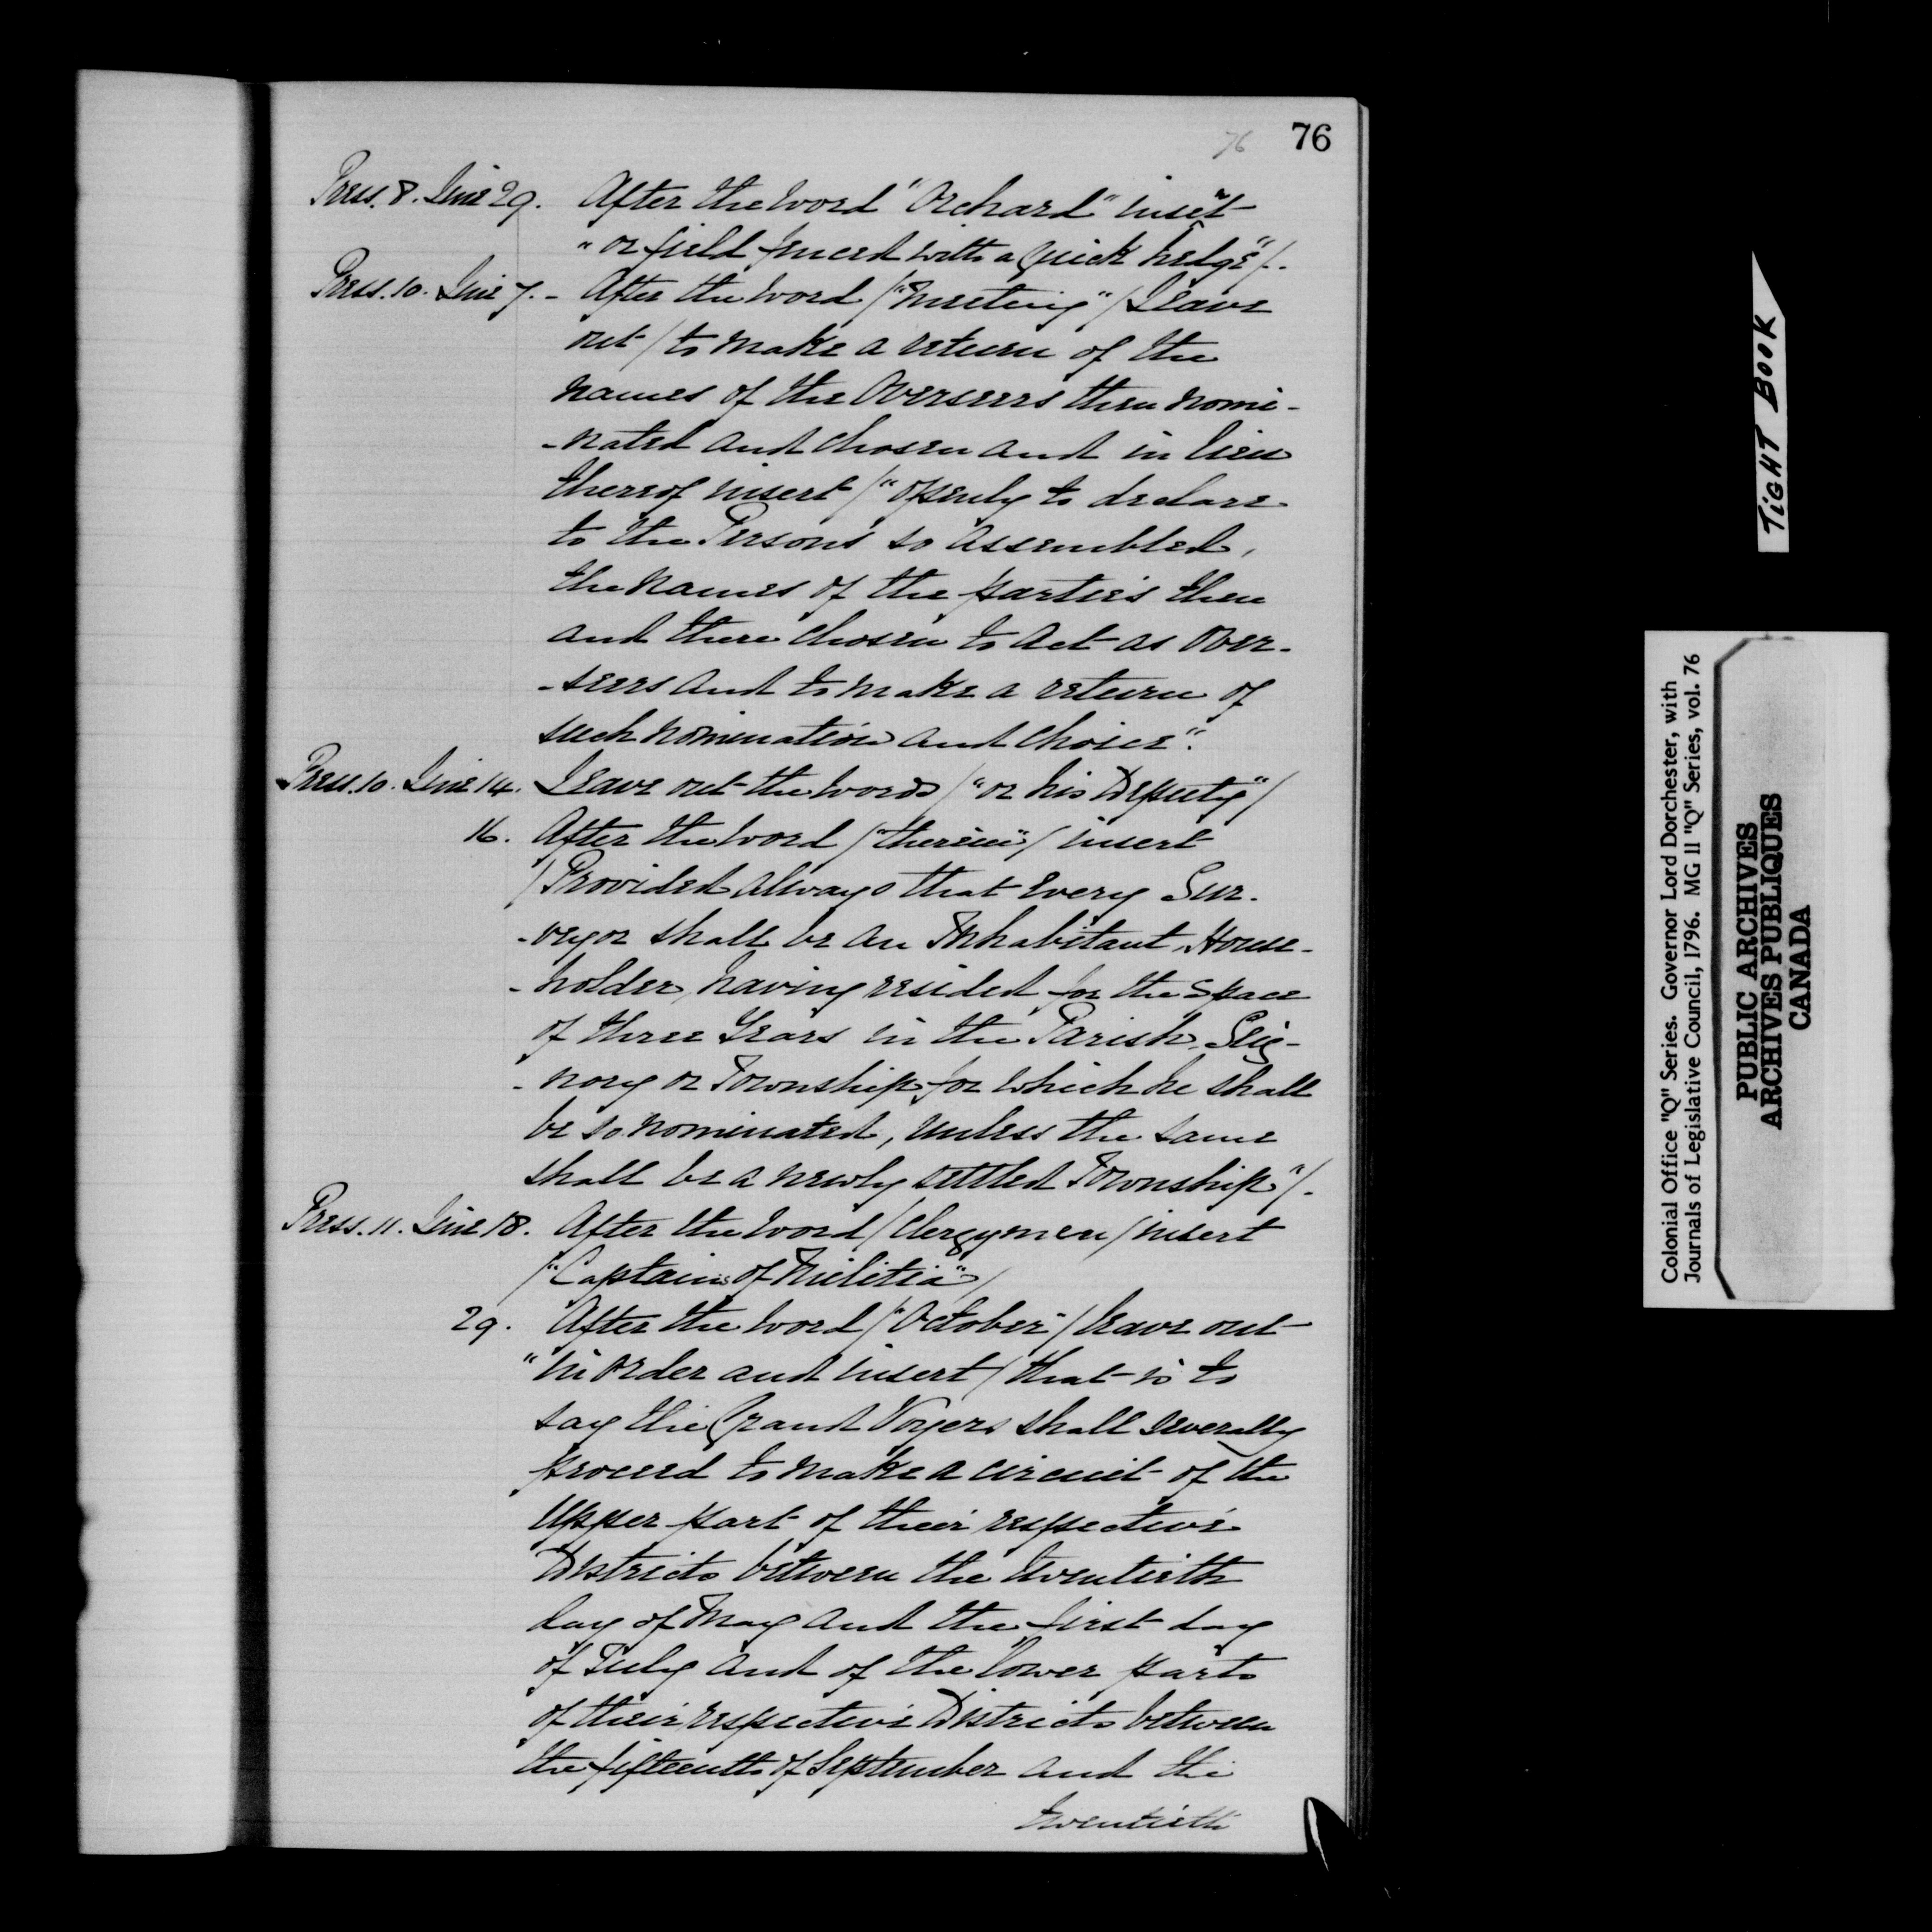 76 76
Press. 8. Line 29. After the word "Orchard" insert
"or field fenced with a quick hedge"/.
Press. 10. Line 7. - After the word /"meeting"/ leave
out / to make a return of the
names of the Overseers then nomi-
-nated and chosen and in lieu
thereof insert /"openly to declare
to the Persons so assembled,
the names of the parties then
and there chosen to act as Over-
-seers and to make a return of
such nomination and choice".
Press. 10. Line 14. Leave out the words /"or his Deputy"/
16. After the word /"therein"/ insert
/Provided always that every Sur-
-veyor shall be an Inhabitant, House-
-holder, having resided for the space
of three Years in the Parish, Seig-
-nory or Township for which he shall
be so nominated, unless the same
shall be a newly settled Township"/.
Press. 11. Line 18. After the word /Clergymen/ insert
/"Captains of Militia"/
29. After the word /"October"/ leave out
"in order and insert / that is to
say the Grand Voyers shall severally
proceed to make a circuit of the
upper part of their respective
Districts between the twentieth
day of May and the first day
of July and of the lower parts
of their respective Districts between
the fifteenth of September and the
twentieth
TIGHT BOOK
Colonial Office "Q" Series. Governor Lord Dorchester, with
Journals of Legislative Council, 1796. MG 11 "Q" Series, vol. 76
PUBLIC ARCHIVES
ARCHIVES PUBLIQUES
CANADA